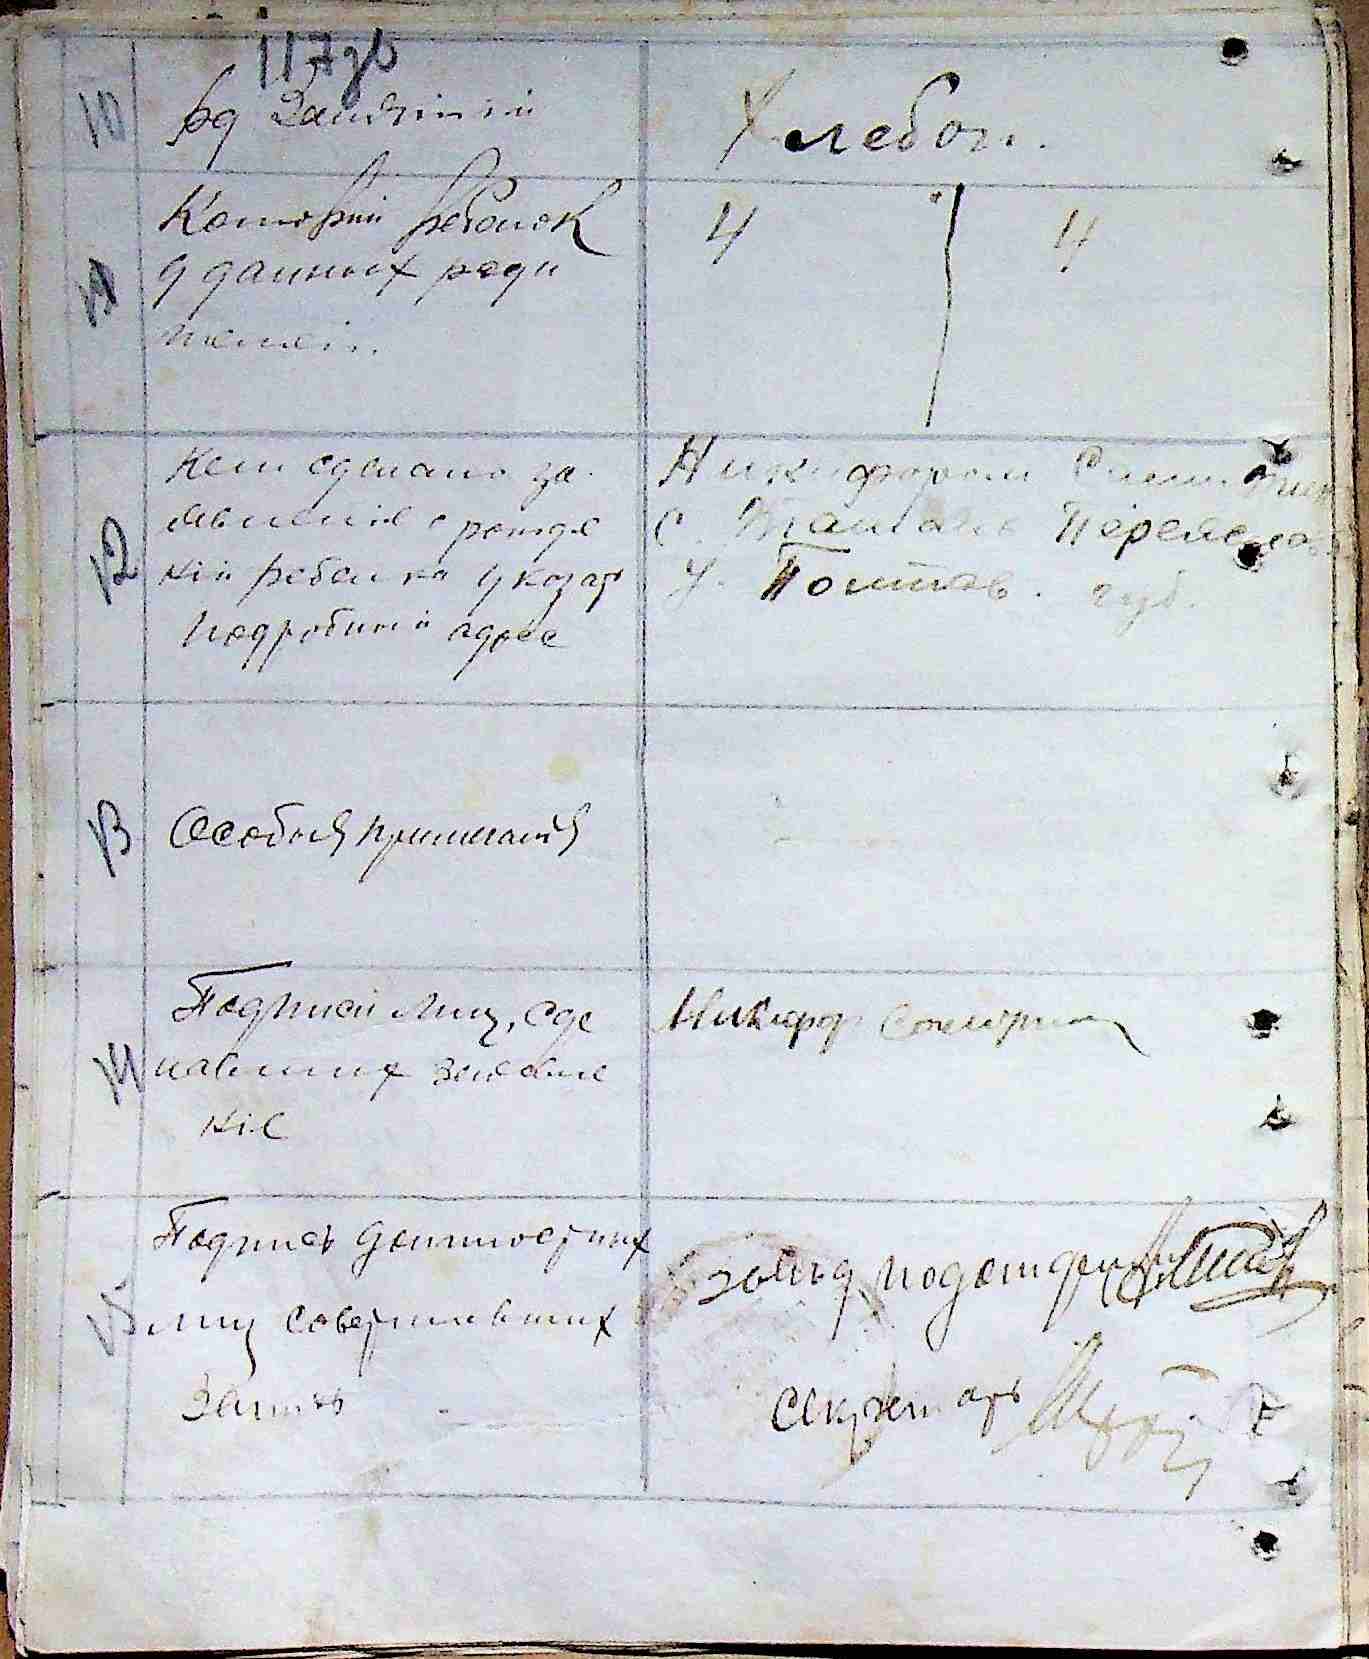 117зв
10
Род Занятий
Хлебоп.
11
Которий ребенок
у данных роди
телей.
4 4
12
Кем сделано за
явление о рожде
ніи ребенка указать
подробный адрес
Никифором
с. Ташань Переясла
у. Полтав. губ.
13
Особыя примечанія
14
Подписи лиц, сде
лавших заявле
ніе
Никифор
15
Подпись должностных
лиц совершивших
Запись
Завед подотделом
Секретарь